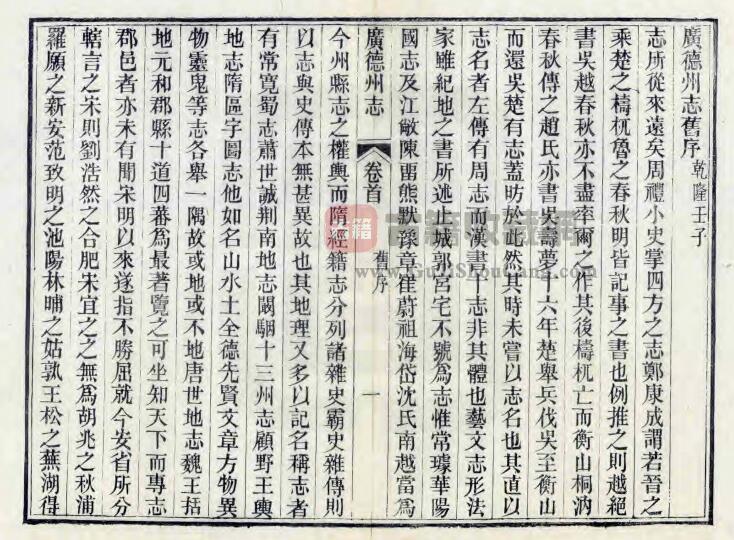 廣德州志舊序 乾隆壬子
志所從來遠矣周禮小史掌四方之志鄭康成謂若晉之
乘楚之檮杌魯之春秋明皆記事之書也例推之則越絕
書吳越春秋亦不盡率爾之作其後檮杌亡而衡山桐汭
春秋傳之趙氏亦書吳壽夢十六年楚舉兵伐吳至衡山
而還吳楚有志蓋昉於此然其時未嘗以志名也其直以
志名者左傳有周志而漢書十志非其體也藝文志形法
家雖紀地之書所述止城郭宮宅不號為志惟常璩華陽
國志及江敞陳畱熊默豫章崔蔚祖海岱沈氏南越當為
廣德州志
卷首
舊序
一
今州縣志之權輿而隋經籍志分列諸雜史霸史雜傳則
以志與史傳本無甚異故也其地理又多以記名稱志者
有常寬蜀志蕭世誠荆南地志闞駰十三州志顧野王輿
地志隋區宇圖志他如名山水土全德先賢文章方物異
物靈鬼等志各舉一隅故或地或不地唐世地志魏王括
地元和郡縣十道四蕃為最著覽之可坐知天下而專志
郡邑者亦未有聞宋明以來遂指不勝屈就今安省所分
轄言之宋則劉浩然之合肥宋宜之之無為胡兆之秋浦
羅願之新安范致明之池陽林㟽之姑孰王松之蕪湖得
古籍收藏網
www.GujiShoucang.com